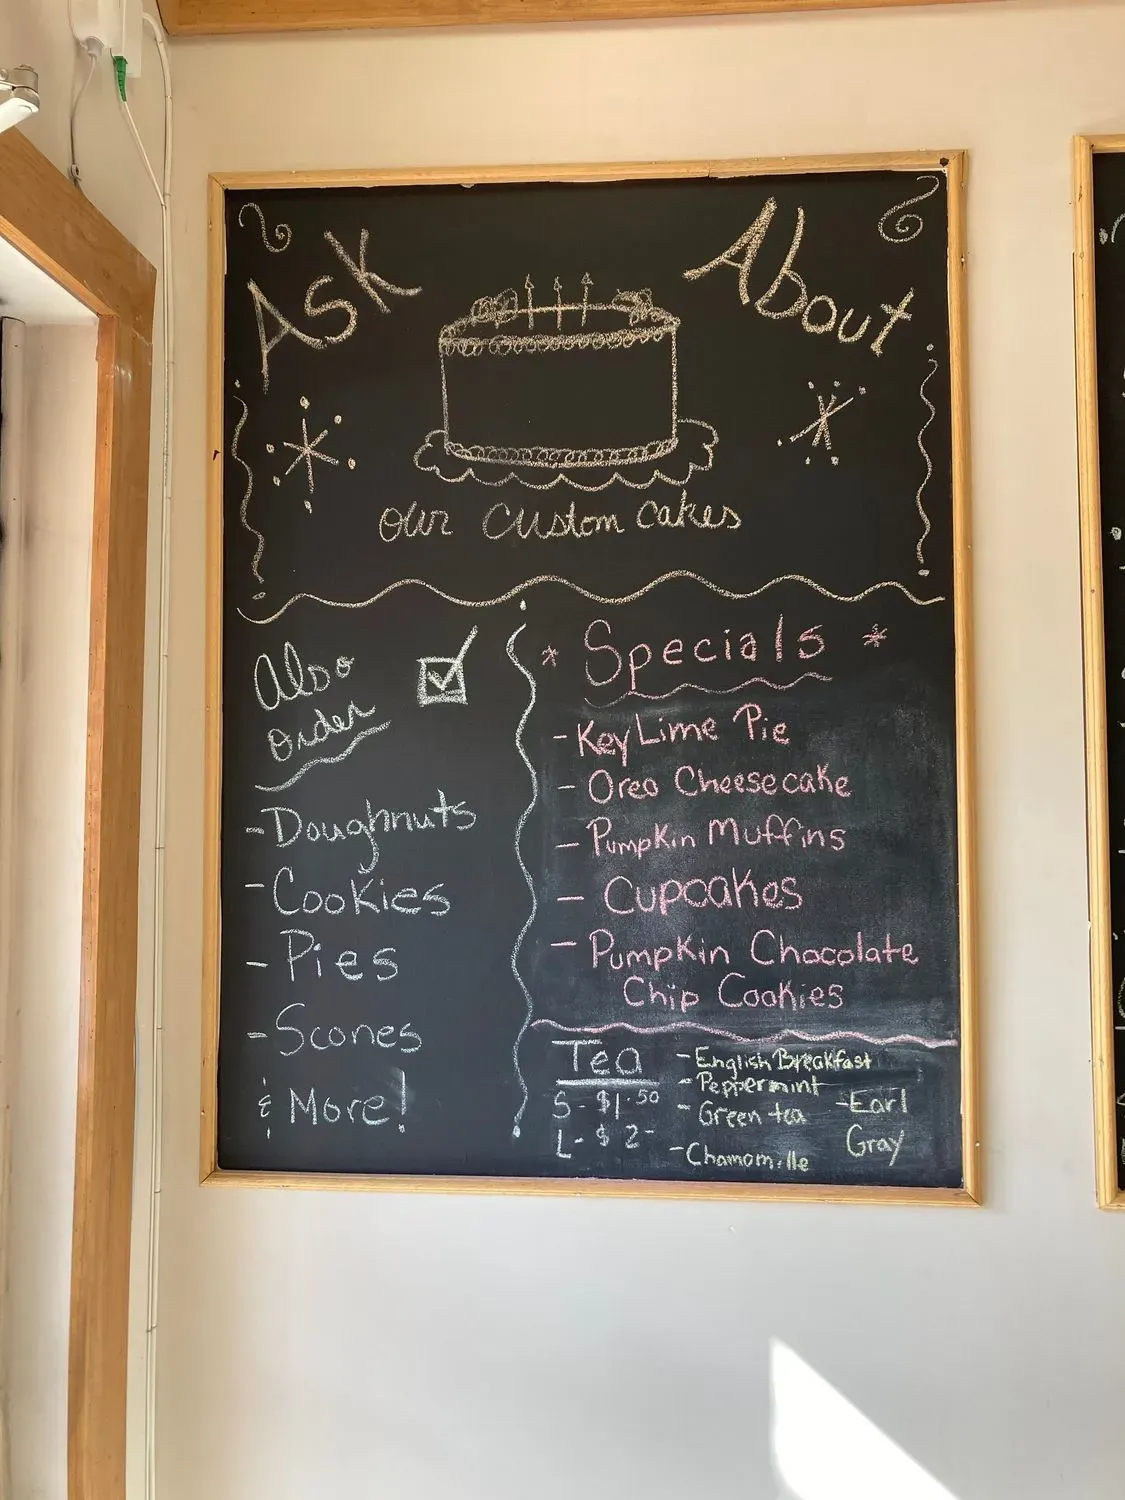 Ask About
our custom cakes
Also
order
- Doughnuts
- Cookies
- Pies
- Scones
& More!
* Specials *
- Key Lime Pie
- Oreo Cheesecake
- Pumpkin Muffins
- Cupcakes
- Pumpkin Chocolate
Chip Cookies
Tea
S - $1.50
L - $2-
- English Breakfast
- Peppermint
- Green tea
- Earl
Gray
- Chamomille